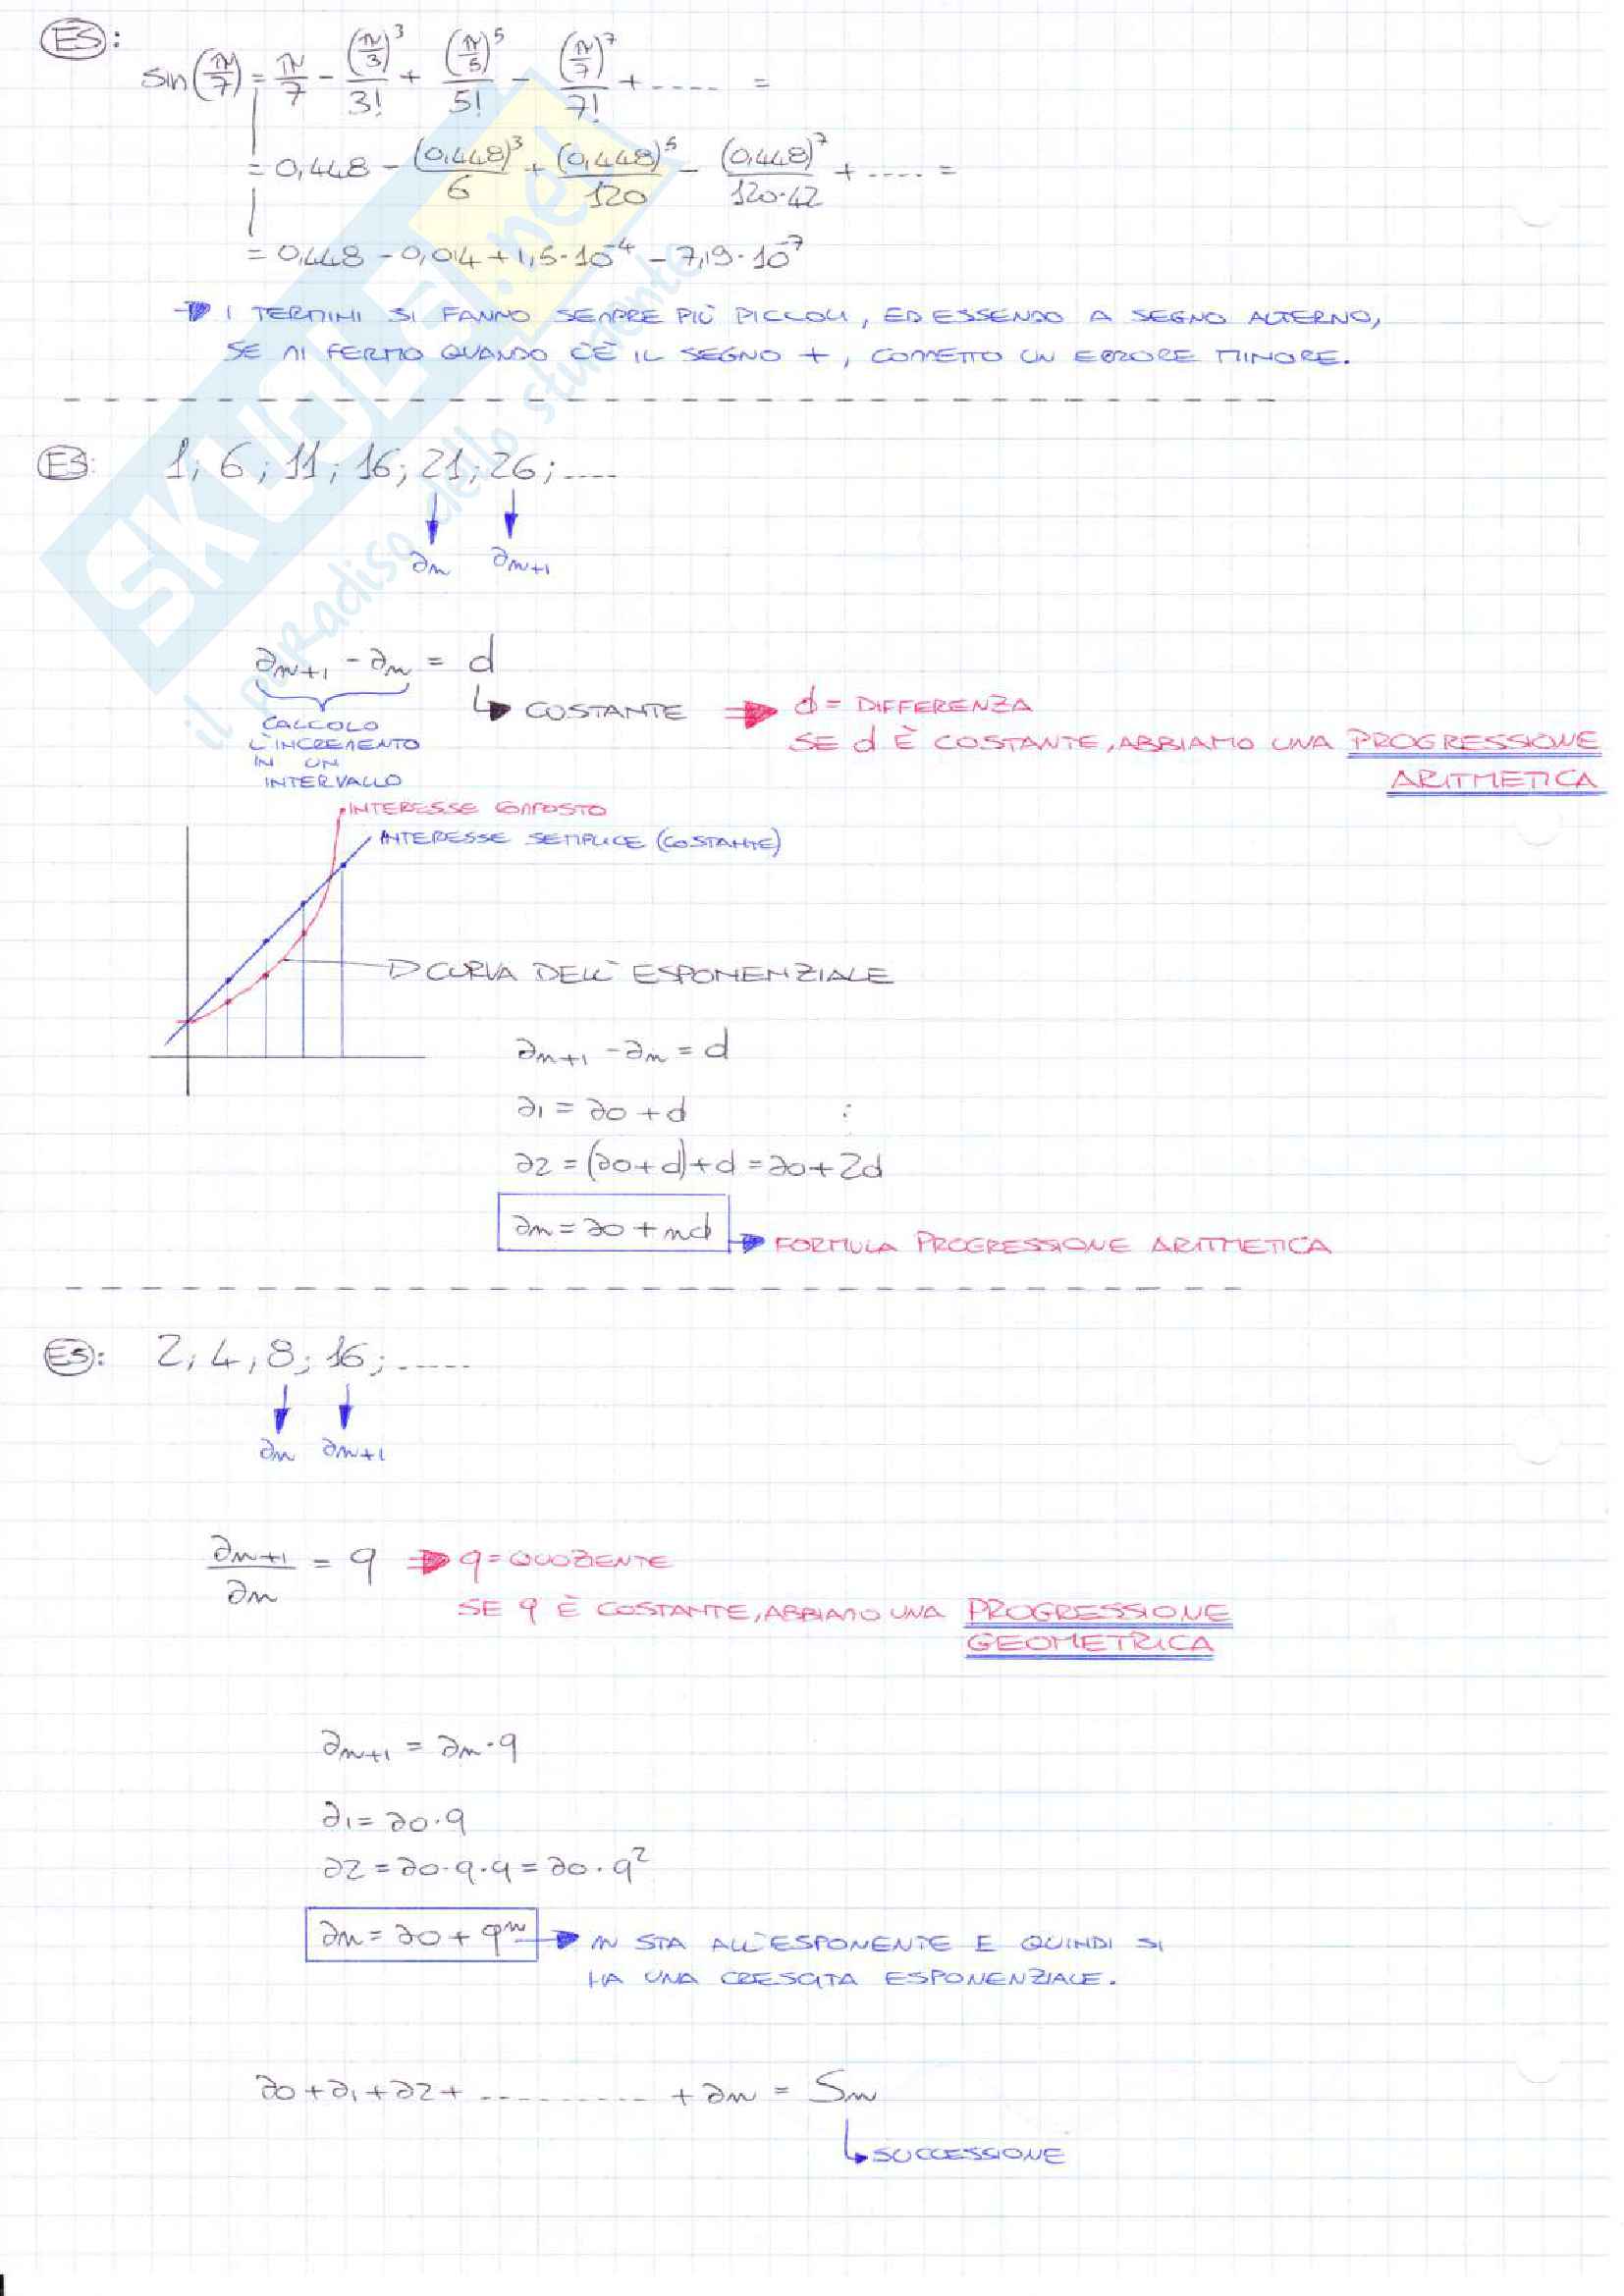 ES:
sin(π/7) = π/7 - (π/3)³/3! + (π/5)⁵/5! - (π/7)⁷/7! + ..... =
= 0,448 - (0,448)³/6 + (0,448)⁵/120 - (0,448)⁷/120·42 + ..... =
= 0,448 - 0,014 + 1,5·10⁻⁴ - 7,19·10⁻⁷
→ I TERMINI SI FANNO SEMPRE PIÙ PICCOLI, ED ESSENDO A SEGNO ALTERNO,
SE MI FERMO QUANDO C'È IL SEGNO +, COMETTO UN ERRORE MINORE.
ES:
1; 6; 11; 16; 21; 26; ....
an an+1
an+1 - an = d
↳ COSTANTE → d = DIFFERENZA
SE d È COSTANTE, ABBIAMO UNA PROGRESSIONE
ARITMETICA
CALCOLO
L'INCREMENTO
IN UN
INTERVALLO
INTERESSE COMPOSTO
INTERESSE SEMPLICE (COSTANTE)
CURVA DELL'ESPONENZIALE
an+1 - an = d
a1 = a0 + d :
a2 = (a0+d)+d = a0+2d
an = a0 + nd → FORMULA PROGRESSIONE ARITMETICA
ES: 2; 4; 8; 16; .....
an an+1
an+1/an = q → q = QUOZIENTE
SE q È COSTANTE, ABBIAMO UNA PROGRESSIONE
GEOMETRICA
an+1 = an·q
a1 = a0·q
a2 = a0·q·q = a0·q²
an = a0 + qⁿ → n STA ALL'ESPONENTE E QUINDI SI
HA UNA CRESCITA ESPONENZIALE.
a0 + a1 + a2 + .......... + an = Sn
↳ SUCCESSIONE
SKUOLA.net
il paradiso dello studente